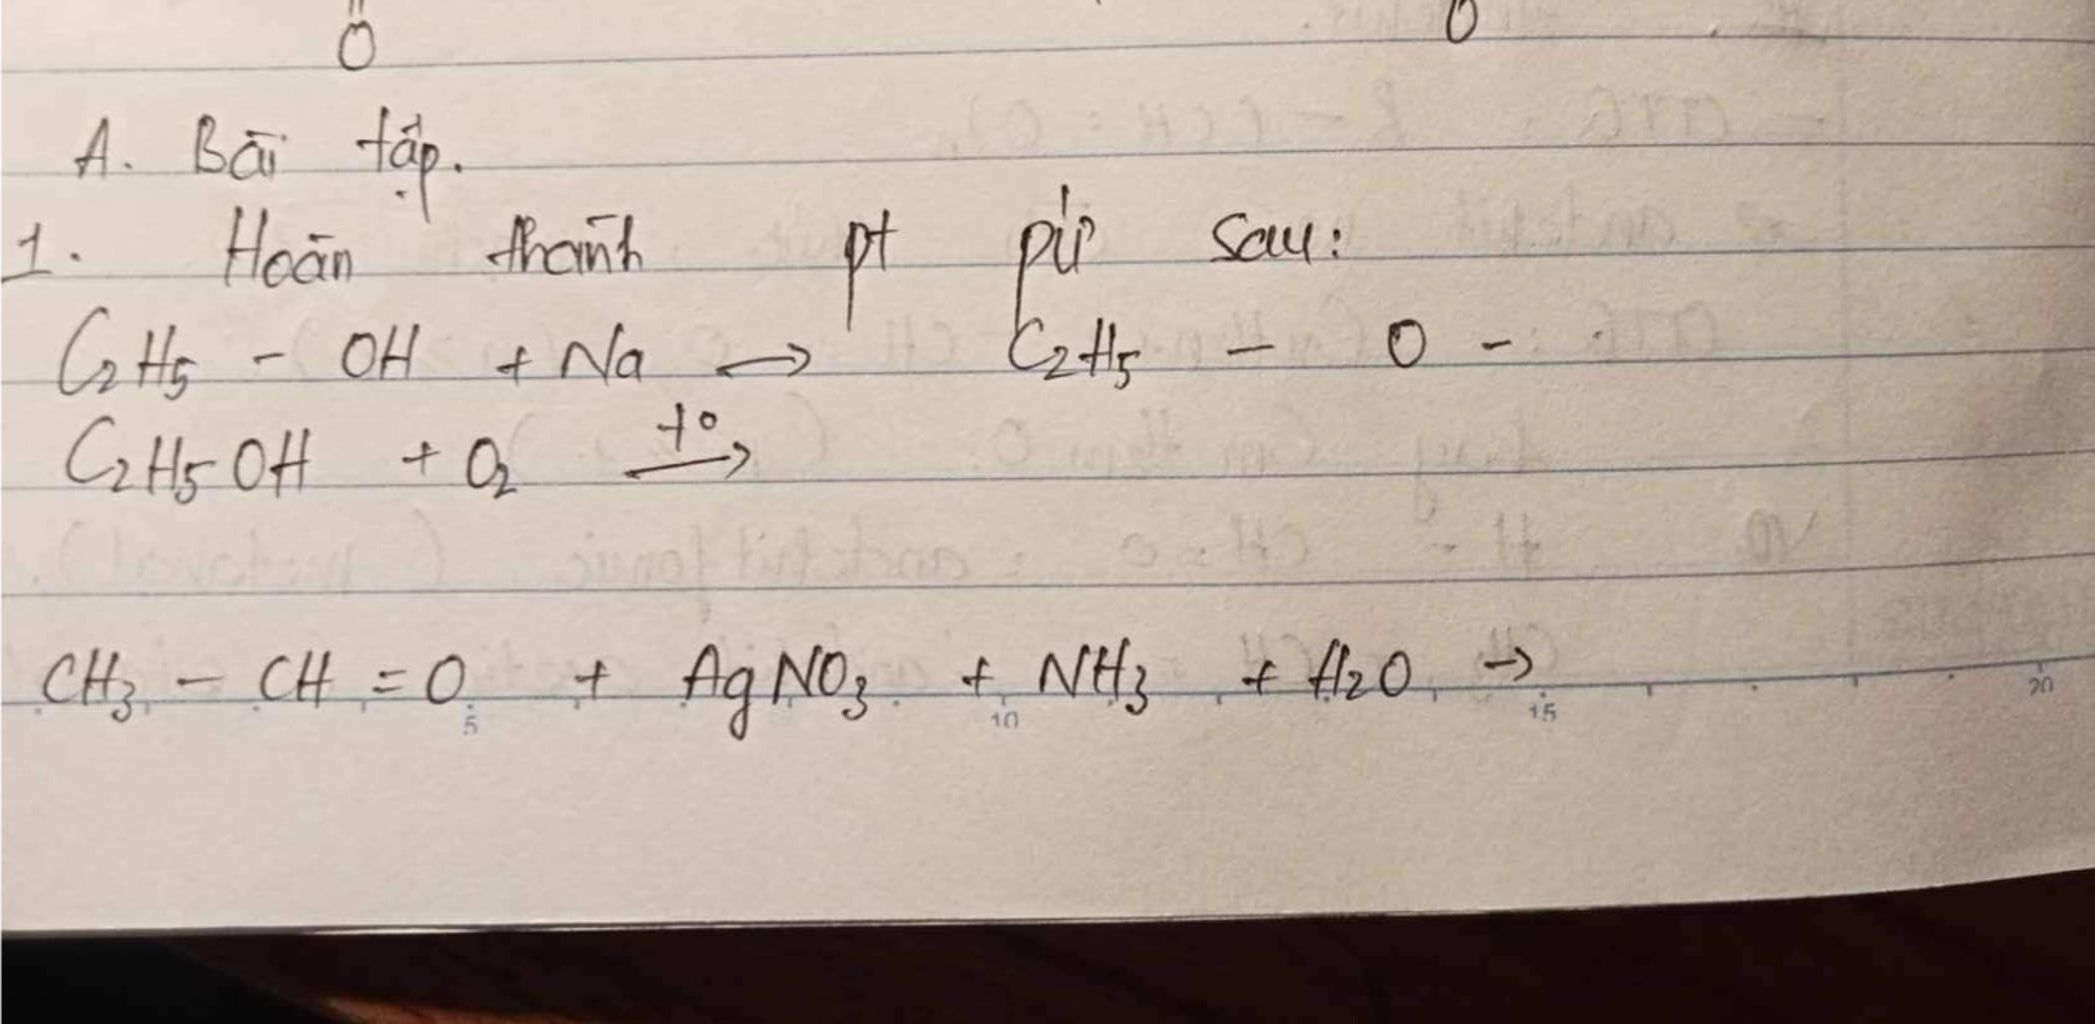 O O
A. Bài tập.
1. Hoàn thành pt pứ sau:
C₂H₅ - OH + Na → C₂H₅ - O -
C₂H₅OH + O₂ →t°
CH₃ - CH = O + AgNO₃ + NH₃ + H₂O →
5 10 15 20